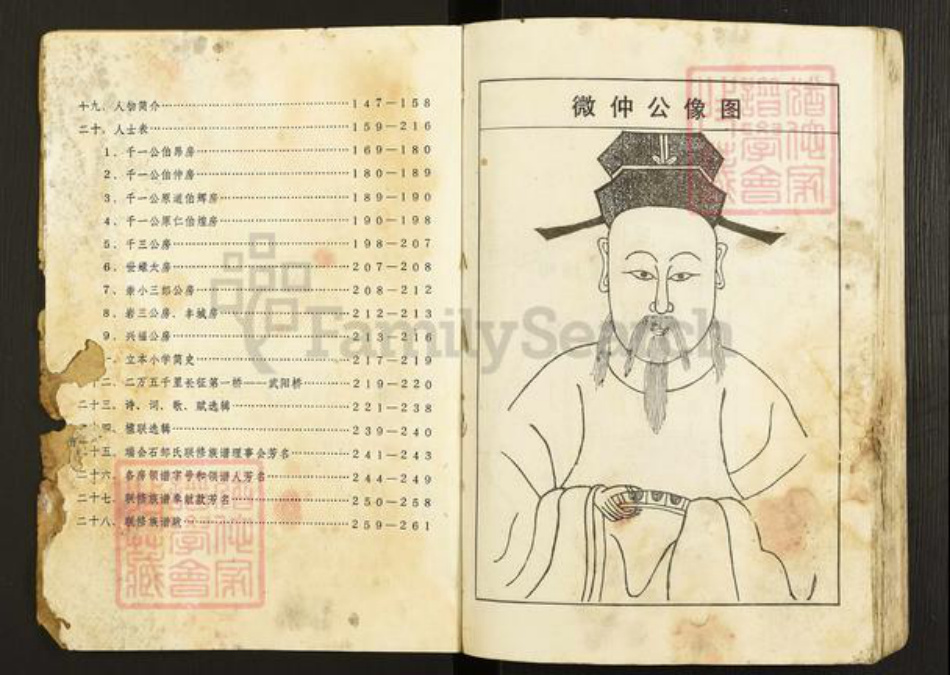 十九、人物简介……147—158
二十、人士表……159—216
1、千一公伯昂房……169—180
2、千一公伯仲房……180—189
3、千一公原道伯辉房……189—190
4、千一公原仁伯煌房……190—198
5、千三公房……198—207
6、世耀大房……207—208
7、小三郎公房……208—212
8、岩三公房、丰城房……212—213
9、兴福公房……213—216
一、立本小学简史……217—219
十二、二万五千里长征第一桥——武阳桥……219—220
二十三、诗、词、歌、赋选辑……221—238
十四、楹联选辑……239—240
十五、瑞会石邹氏联修族谱理事会芳名……241—243
二十六、各房领谱字号和领谱人芳名……244—249
二十七、联修族谱奉献款芳名……250—258
二十八、联修族谱跋……259—261
微仲公像图
FamilySearch